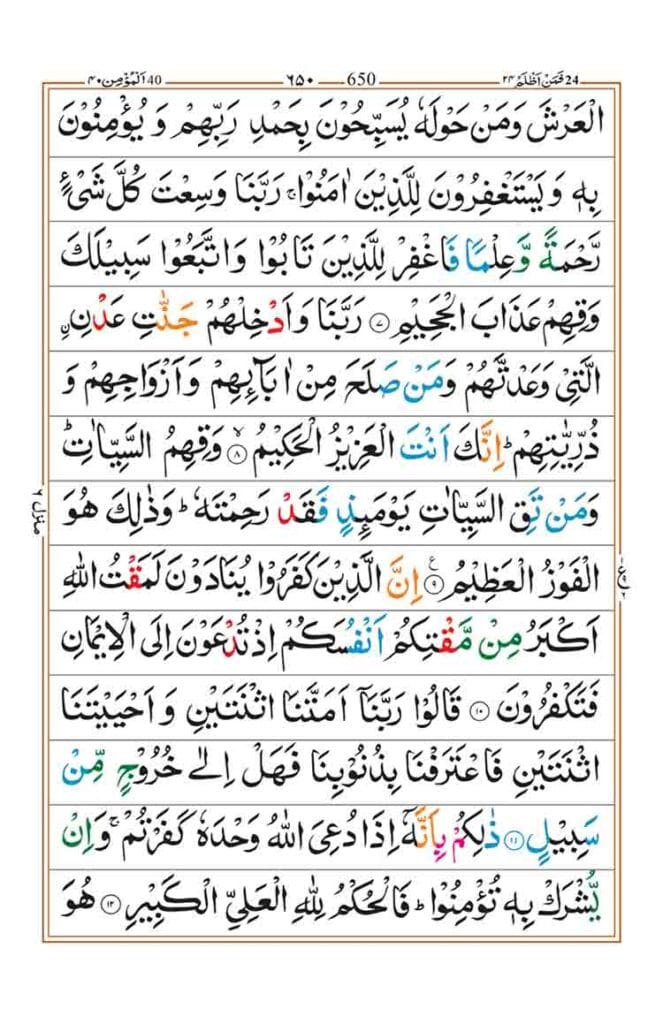 فَمَنْ اَظْلَمُ ٢٤ 24 650 ٦٥٠ اَلْمُؤْمِن ٤٠ 40
الْعَرْشَ وَمَنْ حَوْلَهٗ يُسَبِّحُوْنَ بِحَمْدِ رَبِّهِمْ وَ يُؤْمِنُوْنَ
بِهٖ وَيَسْتَغْفِرُوْنَ لِلَّذِيْنَ اٰمَنُوْا ۚ رَبَّنَا وَسِعْتَ كُلَّ شَیْءٍ
رَّحْمَةً وَّعِلْمًا فَاغْفِرْ لِلَّذِيْنَ تَابُوْا وَاتَّبَعُوْا سَبِيْلَكَ
وَقِهِمْ عَذَابَ الْجَحِيْمِ ۝٧ رَبَّنَا وَاَدْخِلْهُمْ جَنّٰتِ عَدْنِ ِۨ
الَّتِیْ وَعَدْتَّهُمْ وَمَنْ صَلَحَ مِنْ اٰبَآئِهِمْ وَاَزْوَاجِهِمْ وَ
ذُرِّيّٰتِهِمْ ؕ اِنَّكَ اَنْتَ الْعَزِيْزُ الْحَكِيْمُ ۝٨ۙ وَقِهِمُ السَّيِّاٰتِ ؕ
وَمَنْ تَقِ السَّيِّاٰتِ يَوْمَئِذٍ فَقَدْ رَحِمْتَهٗ ؕ وَذٰلِكَ هُوَ
الْفَوْزُ الْعَظِيْمُ ۝٩ ع اِنَّ الَّذِيْنَ كَفَرُوْا يُنَادَوْنَ لَمَقْتُ اللّٰهِ
اَكْبَرُ مِنْ مَّقْتِكُمْ اَنْفُسَكُمْ اِذْ تُدْعَوْنَ اِلَى الْاِيْمَانِ
فَتَكْفُرُوْنَ ۝١٠ قَالُوْا رَبَّنَاۤ اَمَتَّنَا اثْنَتَيْنِ وَ اَحْيَيْتَنَا
اثْنَتَيْنِ فَاعْتَرَفْنَا بِذُنُوْبِنَا فَهَلْ اِلٰى خُرُوْجٍ مِّنْ
سَبِيْلٍ ۝١١ ذٰلِكُمْ بِاَنَّهٗۤ اِذَا دُعِیَ اللّٰهُ وَحْدَهٗ كَفَرْتُمْ ۚ وَاِنْ
يُّشْرَكْ بِهٖ تُؤْمِنُوْا ؕ فَالْحُكْمُ لِلّٰهِ الْعَلِیِّ الْكَبِيْرِ ۝١٢ هُوَ
منزل ٦